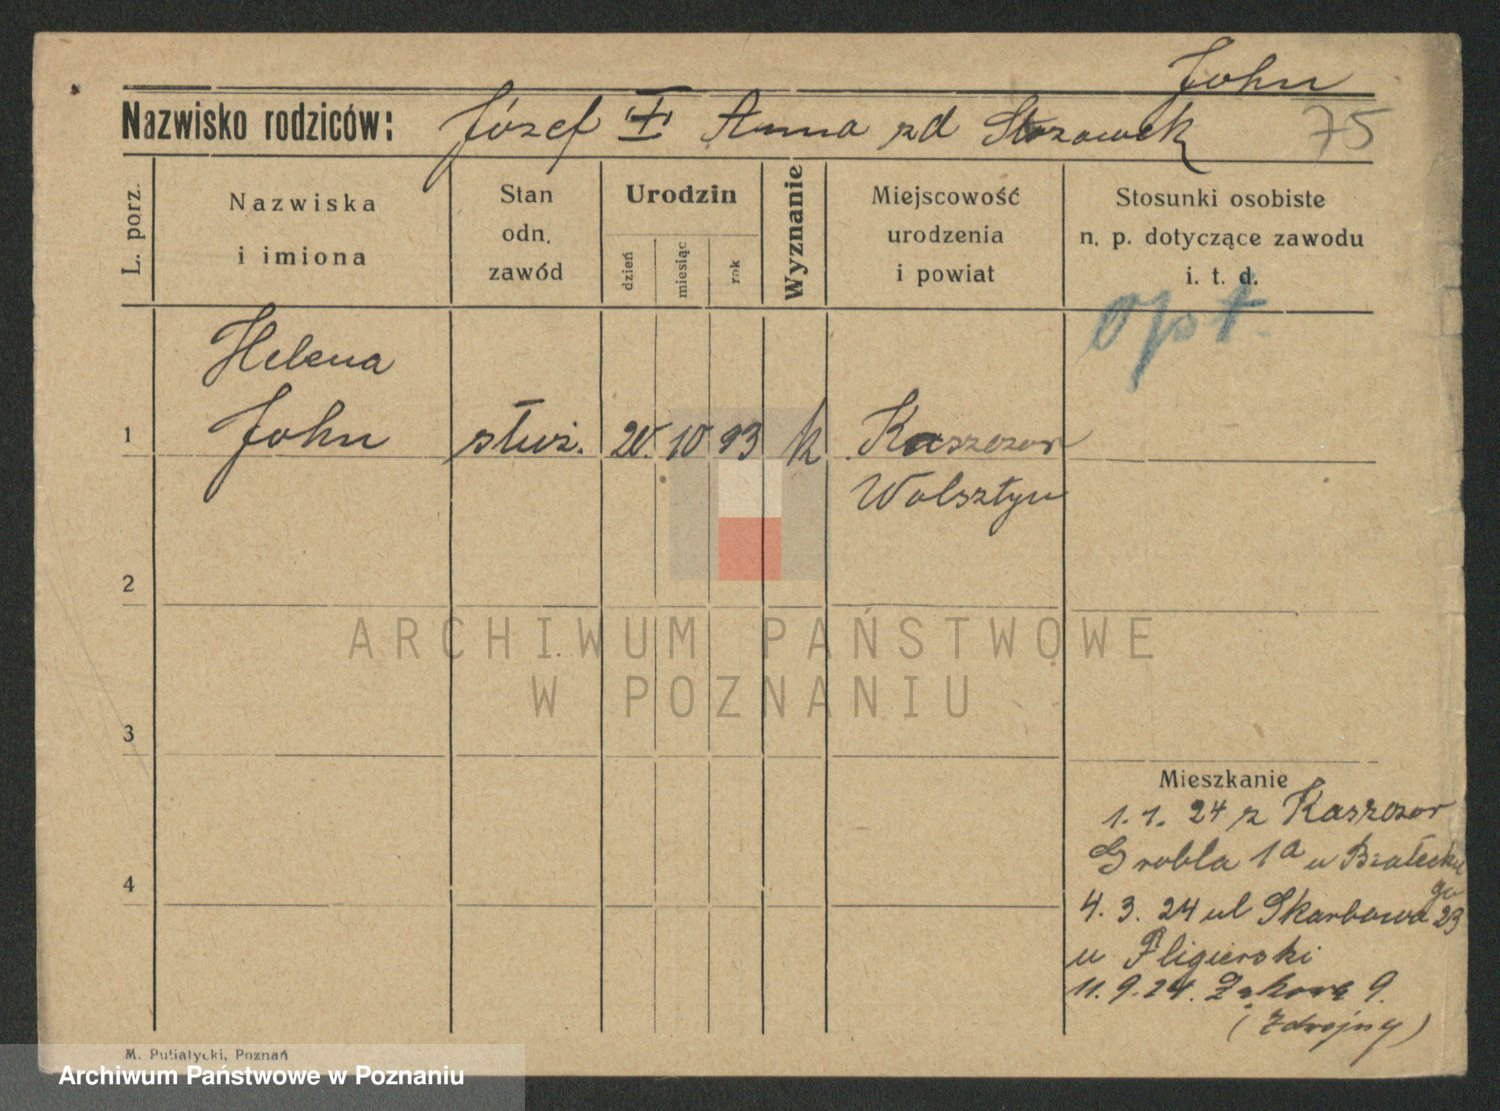 John
Nazwisko rodziców: Józef I Anna zd
75
L. porz.
Nazwiska
i imiona
Stan
odn.
zawód
Urodzin
dzień
miesiąc
rok
Wyznanie
Miejscowość
urodzenia
i powiat
Stosunki osobiste
n. p. dotyczące zawodu
i. t. d.
opt.
Helena
1 John służ. 20. 10 93 k Kaszczor
Wolsztyn
2
ARCHIWUM PAŃSTWOWE
W POZNANIU
3
Mieszkanie
1. 1. 24 z Kaszczor
Grobla 1a u Białecki
go
4
4. 3. 24 ul Skarbowa 23
u Fligierski
11. 9. 24. 9.
(Zdrojny)
M. Putiatycki, Poznań
Archiwum Państwowe w Poznaniu